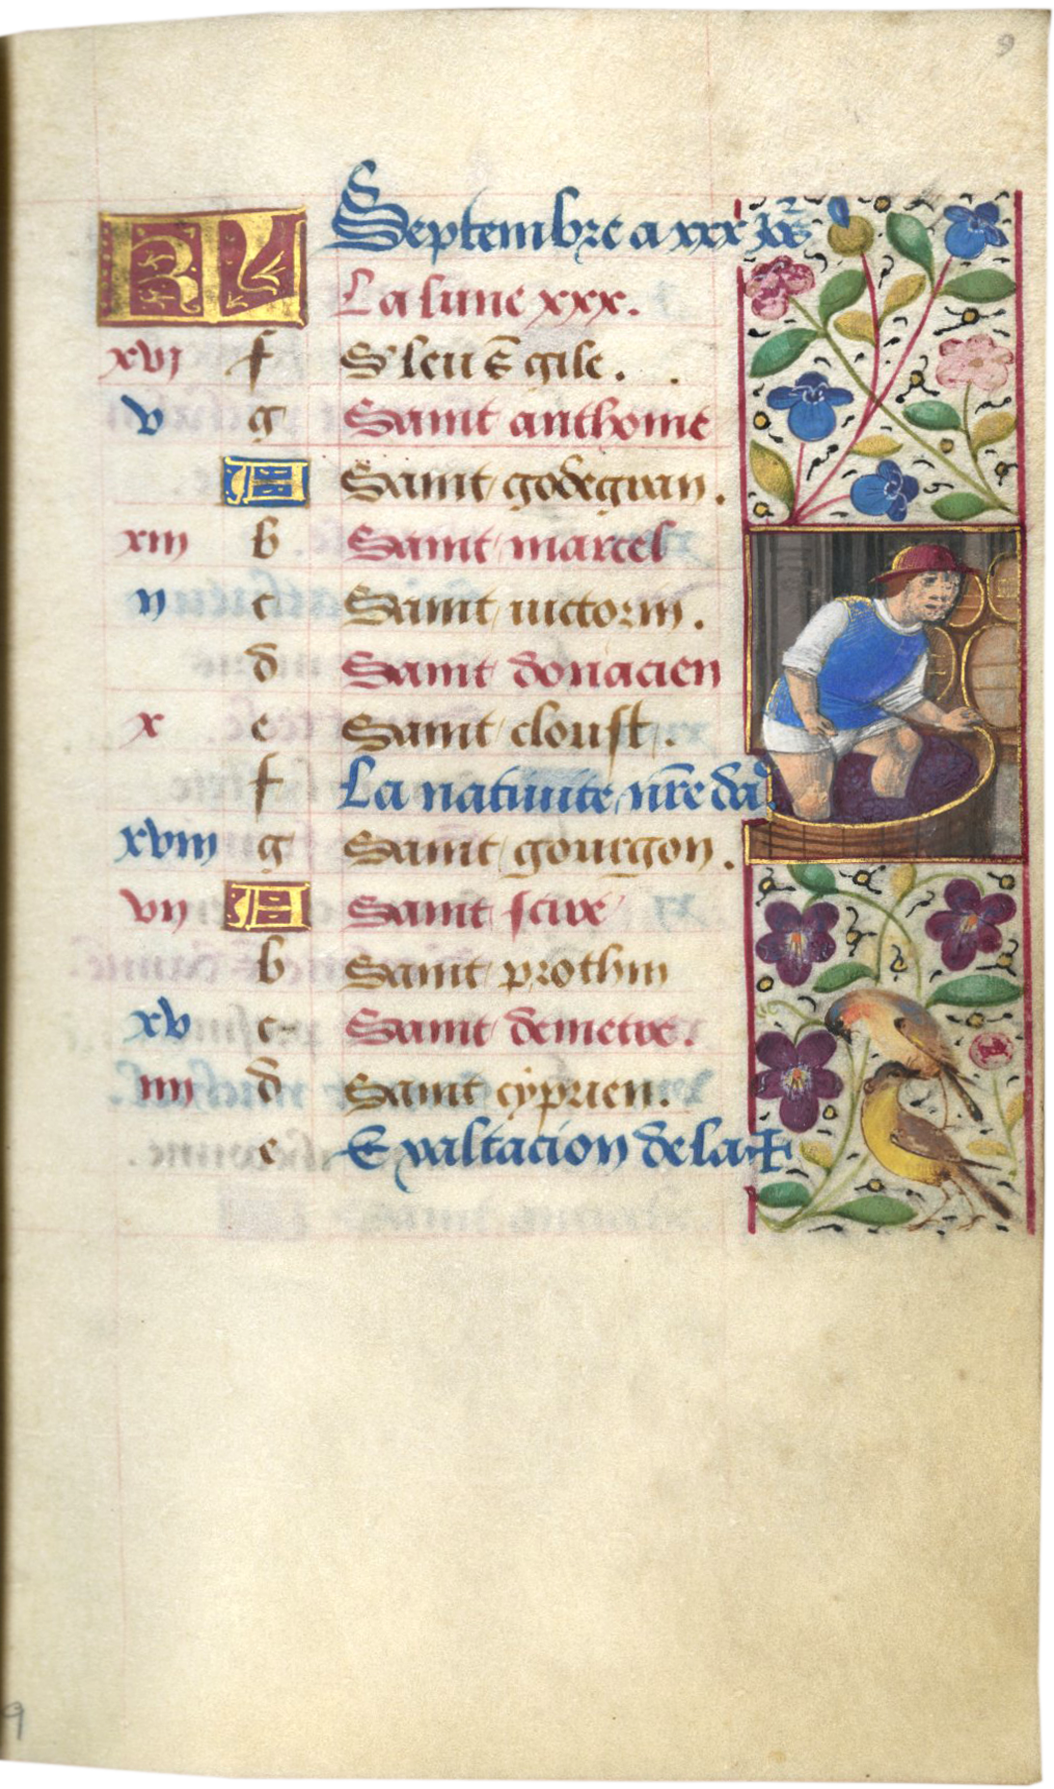 9
KL Septembre a xxx Jo͞s
La lune xxx.
xvj f S' leu ⁊ gile.
v g Saint anthoine
A Saint godegran.
xiij b Saint marcel
ij c Saint victorin.
d Saint donacien
x e Saint cloust.
f La natiuite nr̄e da
xviij g Saint gourgon.
vij A Saint
b Saint prothin
xv c Saint demetre.
iiij d Saint cyprien.
e Exaltacion de la ✝
9